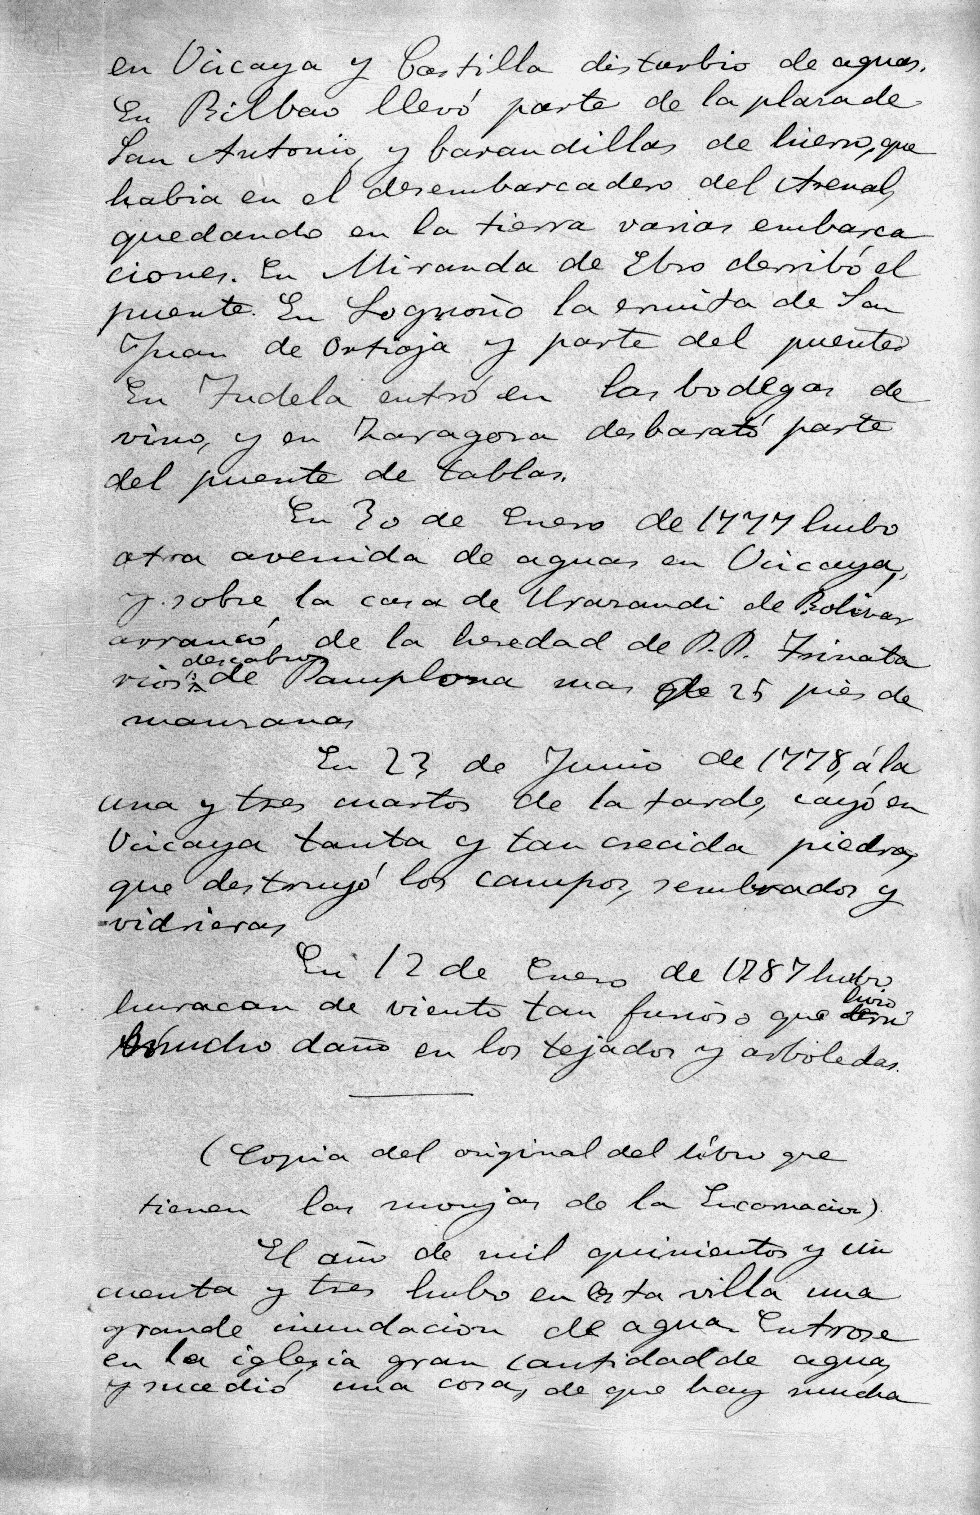 en Vizcaya y Castilla disturbio de aguas.
En Bilbao llevó parte de la plaza de
San Antonio, y barandillas de hierro, que
habia en el desembarcadero del Arenal,
quedando en la tierra varias embarca
ciones. En Miranda de Ebro derribó el
puente. En Logroño la ermita de San
Juan de Ortioja y parte del puente
En Tudela entró en las bodegas de
vino, y en Zaragoza desbarató parte
del puente de tablas.
En 30 de Enero de 1777 hubo
otra avenida de aguas en Vizcaya,
y sobre la casa de Urazandi de Bolivar
arrancó, de la heredad de P.P. Trinata
descalzos
rios de Pamplona mas de 25 piés de
manzanas
En 23 de Junio de 1778, á la
una y tres cuartos de la tarde, cayó en
Vizcaya tanta y tan crecida piedra,
que destruyó los campos, sembrados y
vidrieras
En 12 de Enero de 1787 hubo
hizo
huracan de viento tan furioso que derri
bó mucho daño en los tejados y arboledas.
(Copia del original del libro que
tienen las monjas de la Encarnacion)
El año de mil quinientos y cin
cuenta y tres hubo en esta villa una
grande inundacion de agua. Entrose
en la iglesia gran cantidad de agua,
y sucedió una cosa, de que hay mucha